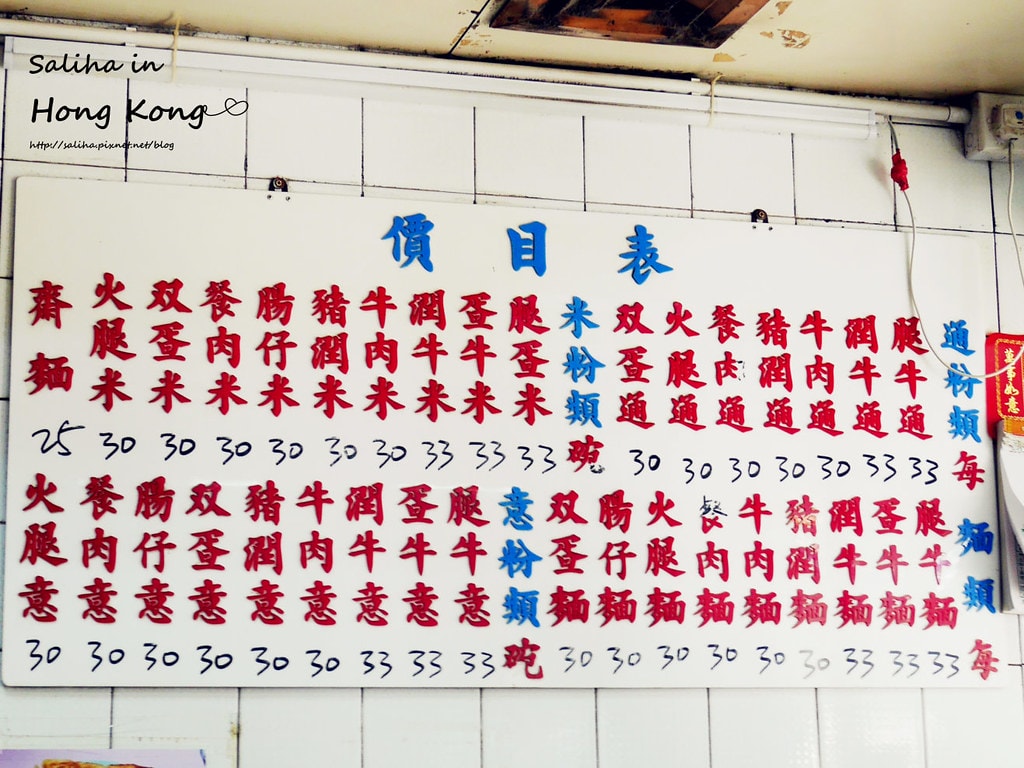 Saliha in
Hong Kong
http://saliha.pixnet.net/blog
價目表
通粉類
腿牛通
潤牛通
牛肉通
豬潤通
餐肉通
火腿通
双蛋通
每 33 33 30 30 30 30 30
米粉類
腿蛋米
蛋牛米
潤牛米
牛肉米
豬潤米
腸仔米
餐肉米
双蛋米
火腿米
齋麵
碗 33 33 33 30 30 30 30 30 30 25
麵類
腿牛麵
蛋牛麵
潤牛麵
豬潤麵
牛肉麵
餐肉麵
火腿麵
腸仔麵
双蛋麵
每 33 33 33 30 30 30 30 30 30
意粉類
腿牛意
蛋牛意
潤牛意
牛肉意
豬潤意
双蛋意
腸仔意
餐肉意
火腿意
碗 33 33 33 30 30 30 30 30 30
萬事如意